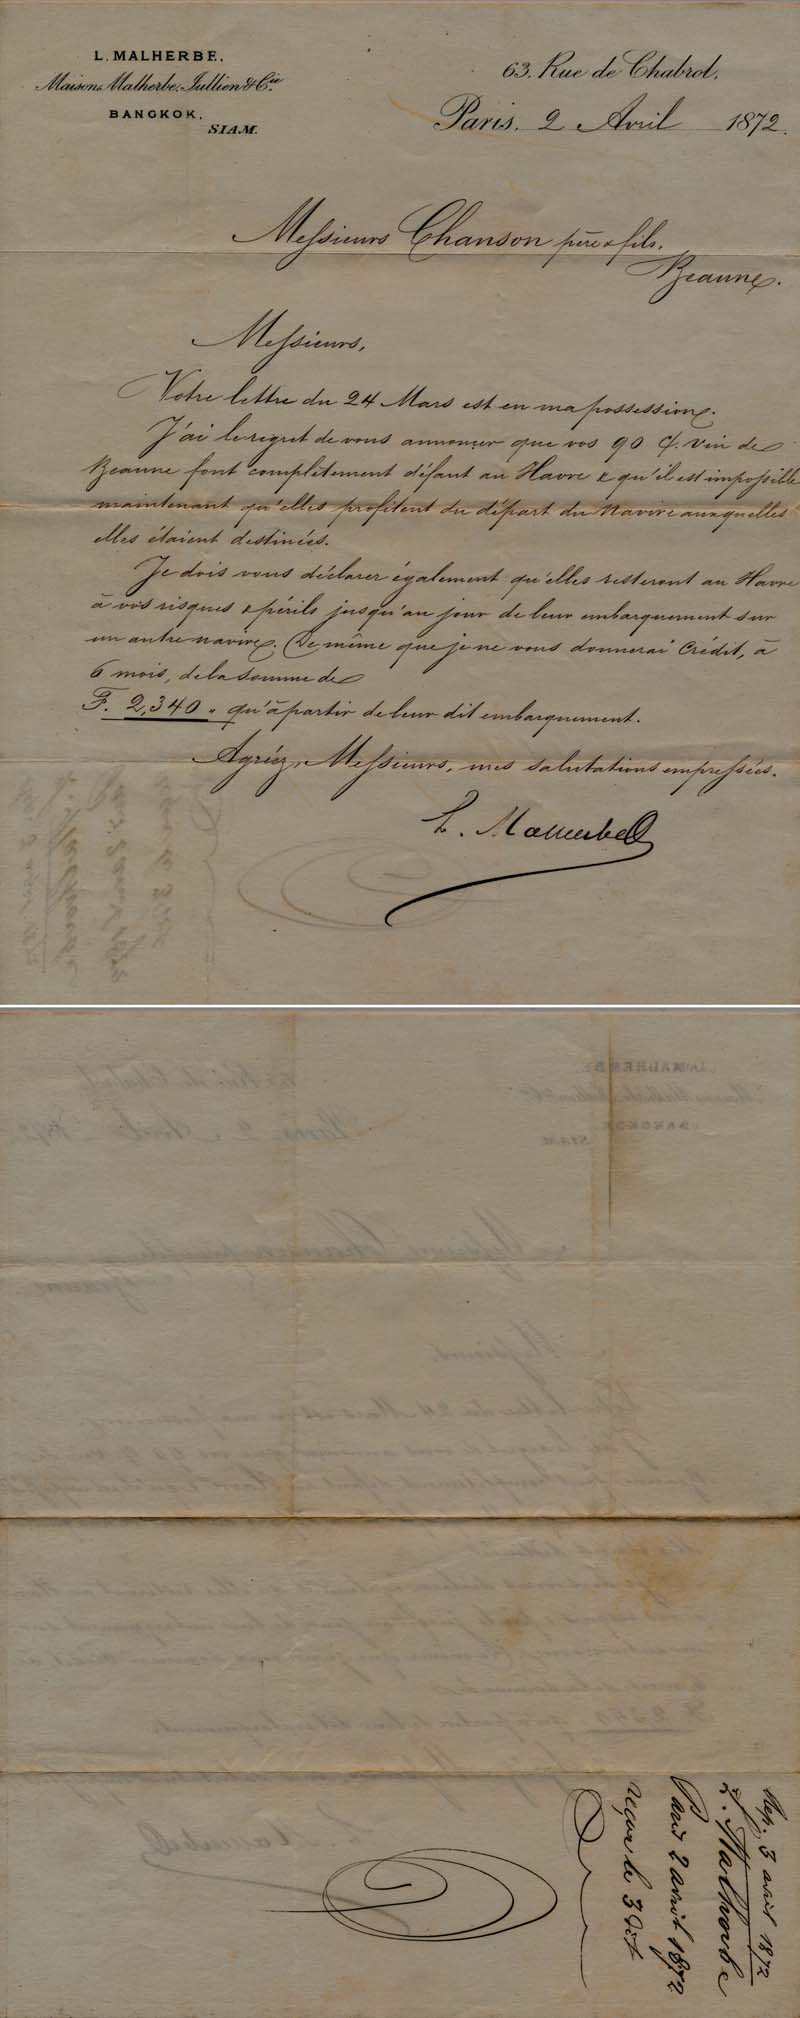 L. MALHERBE,
Maison Malherbe, Jullien & Cie
BANGKOK,
SIAM.
63. Rue de Chabrol,
Paris, 2 Avril 1872.
Messieurs Chanson père & fils.
Beaune.
Messieurs,
Votre lettre du 24 Mars est en ma possession.
J'ai le regret de vous annoncer que vos 90 C/. vin de
Beaune font complètement défaut au Havre & qu'il est impossible
maintenant qu'elles profitent du départ du Navire auxquelles
elles étaient destinées.
Je dois vous déclarer également qu'elles resteront au Havre
à vos risques & périls jusqu'au jour de leur embarquement sur
un autre navire. De même que je ne vous donnerai Crédit, à
6 mois, de la somme de
F. 2,340 " qu'à partir de leur dit embarquement.
Agréez, Messieurs, mes salutations empressées.
L. Malherbe
Rep. 3 avril 1872
L. Malherbe
Paris 2 avril 1872
reçue le 3 dit